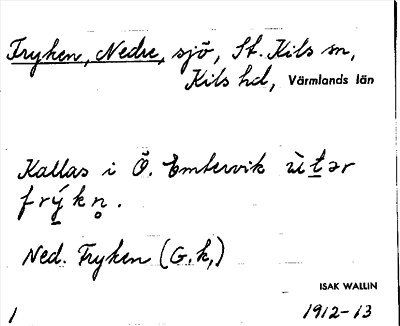 Fryken, Nedre, sjö, St. Kils sn,
Kils hd, Värmlands län
Kallas i Ö. Emtervik ùtər
frýkn̥.
Ned. Fryken (G.k.)
ISAK WALLIN
1 1912-13